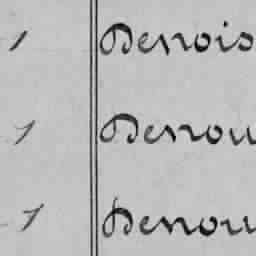 1 Denois
1 Denou
1 Denou